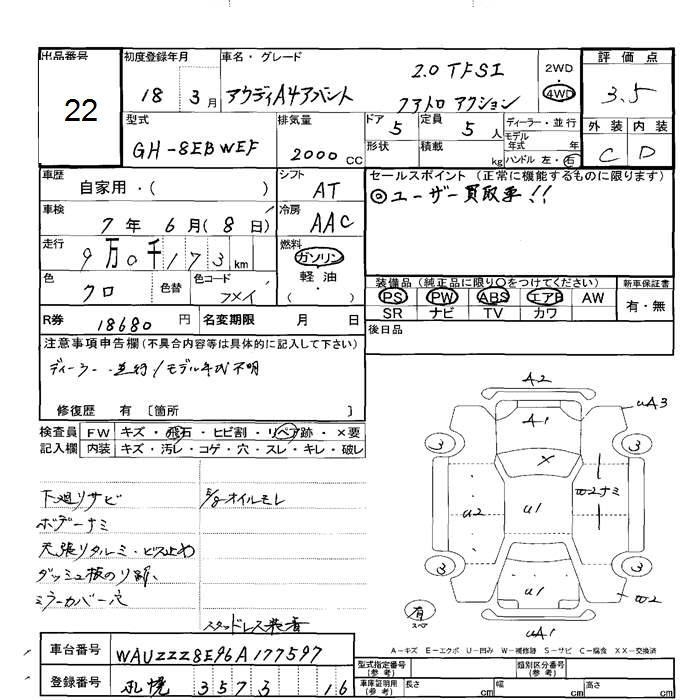 出品番号
22
初度登録年月
18 3月
車名・グレード
アウディA4アバント
2.0 TFSI
クアトロ
2WD
4WD
評価点
3.5
型式
GH-8EBWEF
排気量
2000 CC
ドア 5
定員 5人
形状
積載 kg
ディーラー・並行
モデル年式 年
ハンドル 左・右
外装 内装
C D
車歴
自家用・( )
シフト
AT
車検
7年 6月(8日)
冷房
AAC
走行
9万0千173km
燃料
ガソリン
軽油
( )
色
クロ
色替
色コード
R券
18680円
名変期限 月 日
セールスポイント(正常に機能するものに限ります)
◎ユーザー買取車!!
装備品(純正品に限り○をつけてください)
PS PW ABS エアB AW
SR ナビ TV カワ
新車保証書
有・無
後日品
注意事項申告欄(不具合内容等は具体的に記入して下さい)
ディーラー・並行/モデル年式不明
修復歴 有〔箇所 〕
検査員記入欄
FW キズ・飛石・ヒビ割・リペア跡・×要
内装 キズ・汚レ・コゲ・穴・スレ・キレ・破レ
下廻リサビ
E/gオイルモレ
ボデーナミ
天張リタルミ・ビス止め
ミラーカバー穴
スタッドレス装着
A2
A1
uA3
3
3
X
u2
u1
W2ナミ
3
3
u1
W2
uA1
有
スペア
A-キズ E-エクボ U-凹み W-補修跡 S-サビ C-腐食 XX-交換済
車台番号
WAUZZZ8E96A177597
登録番号
札幌 3573 16
型式指定番号(参考)
類別区分番号(参考)
車庫証明用(参考)
長さ cm
幅 cm
高さ cm